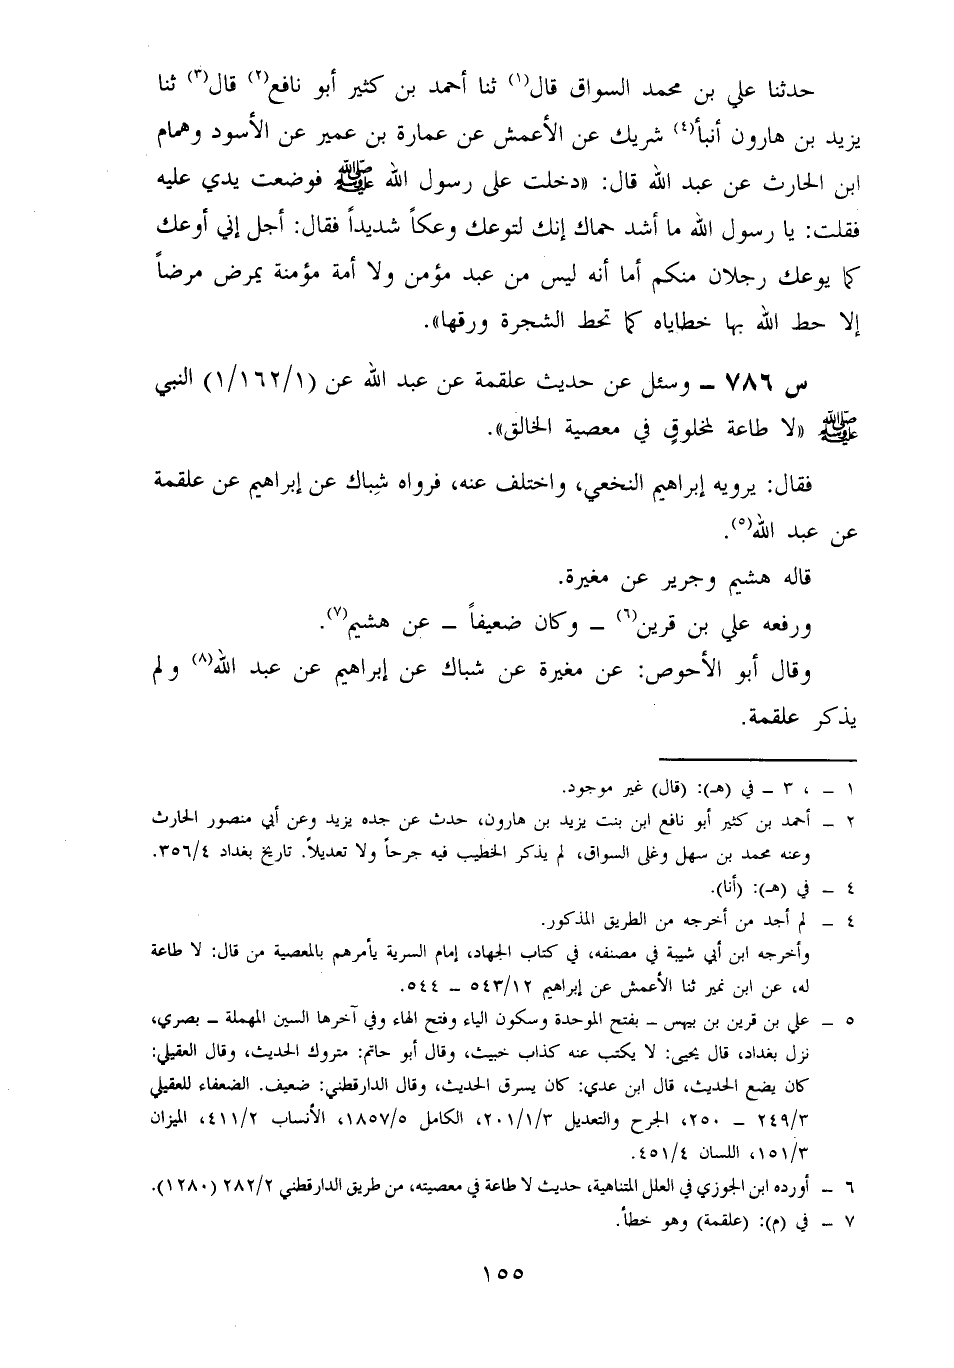 حدثنا علي بن محمد السواق قال(١) ثنا أحمد بن كثير أبو نافع(٢) قال(٣) ثنا
يزيد بن هارون أنبأ(٤) شريك عن الأعمش عن عمارة بن عمير عن الأسود وهمام
ابن الحارث عن عبد الله قال: «دخلت على رسول الله ﷺ فوضعت يدي عليه
فقلت: يا رسول الله ما أشد حماك إنك لتوعك وعكاً شديداً فقال: أجل إني أوعك
كما يوعك رجلان منكم أما أنه ليس من عبد مؤمن ولا أمة مؤمنة يمرض مرضاً
إلا حط الله بها خطاياه كما تحط الشجرة ورقها».
س ٧٨٦ ــ وسئل عن حديث علقمة عن عبد الله عن (١/١٦٢/١) النبي
ﷺ «لا طاعة لمخلوقٍ في معصية الخالق».
فقال: يرويه إبراهيم النخعي، واختلف عنه، فرواه شِباك عن إبراهيم عن علقمة
عن عبد الله(٥).
قاله هشيم وجرير عن مغيرة.
ورفعه علي بن قرين(٦) ــ وكان ضعيفاً ــ عن هشيم(٧).
وقال أبو الأحوص: عن مغيرة عن شباك عن إبراهيم عن عبد الله(٨) ولم
يذكر علقمة.
١ ــ ، ٣ ــ في (هـ): (قال) غير موجود.
٢ ــ أحمد بن كثير أبو نافع ابن بنت يزيد بن هارون، حدث عن جده يزيد وعن أبي منصور الحارث
وعنه محمد بن سهل وغلى السواق، لم يذكر الخطيب فيه جرحاً ولا تعديلاً. تاريخ بغداد ٣٥٦/٤.
٤ ــ في (هـ): (أنا).
٤ ــ لم أجد من أخرجه من الطريق المذكور.
وأخرجه ابن أبي شيبة في مصنفه، في كتاب الجهاد، إمام السرية يأمرهم بالمعصية من قال: لا طاعة
له، عن ابن نمير ثنا الأعمش عن إبراهيم ٥٤٣/١٢ ــ ٥٤٤.
٥ ــ علي بن قرين بن بيهس ــ بفتح الموحدة وسكون الياء وفتح الهاء وفي آخرها السين المهملة ــ بصري،
نزل بغداد، قال يحيى: لا يكتب عنه كذاب خبيث، وقال أبو حاتم: متروك الحديث، وقال العقيلي:
كان يضع الحديث، قال ابن عدي: كان يسرق الحديث، وقال الدارقطني: ضعيف. الضعفاء للعقيلي
٢٤٩/٣ ــ ٢٥٠، الجرح والتعديل ٢٠١/١/٣، الكامل ١٨٥٧/٥، الأنساب ٤١١/٢، الميزان
١٥١/٣، اللسان ٤٥١/٤.
٦ ــ أورده ابن الجوزي في العلل المتناهية، حديث لا طاعة في معصيته، من طريق الدارقطني ٢٨٢/٢ (١٢٨٠).
٧ ــ في (م): (علقمة) وهو خطأ.
١٥٥